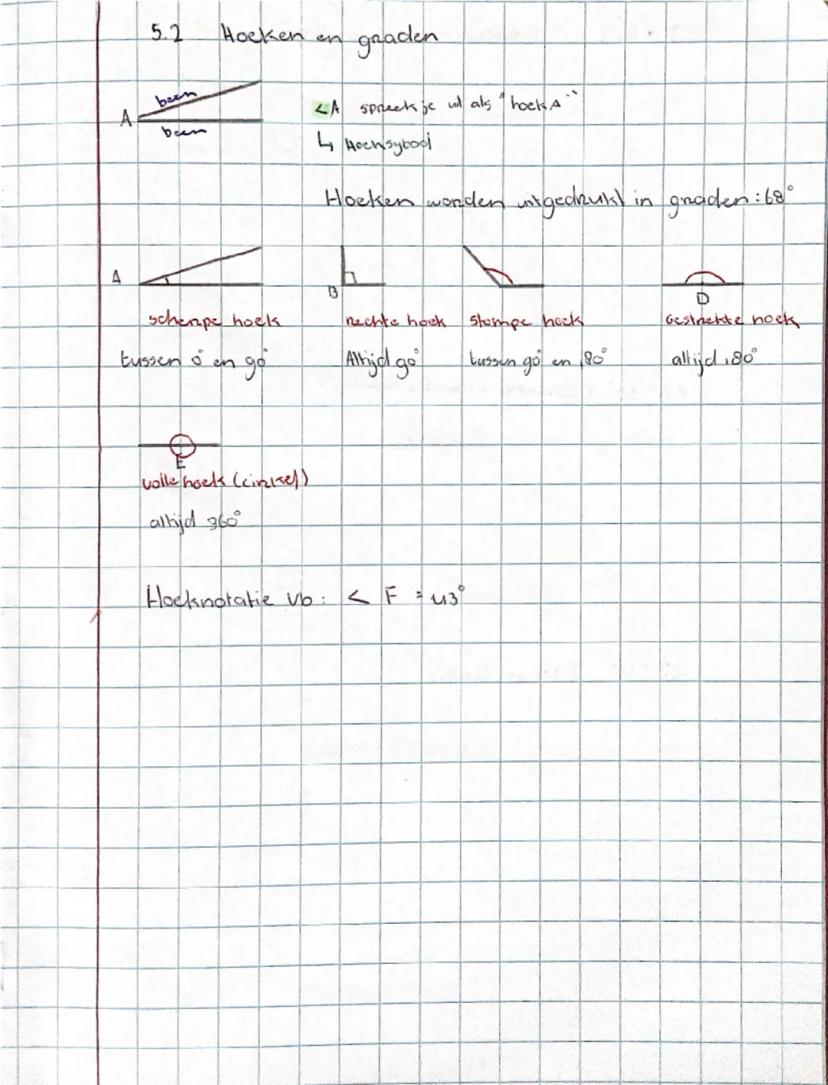 5.2 Hoeken en graden
been
A
been
<A spreek je uit als "hoek A"
↳ Hoeksybool
Hoeken worden uitgedrukt in graden: 68°
A
B
D
scherpe hoek rechte hoek stompe hoek Gestrekte hoek
tussen 0° en 90° Altijd 90° tussen 90° en 180° altijd 180°
E
volle hoek (cirkel)
altijd 360°
Hoeknotatie vb: < F = 43°